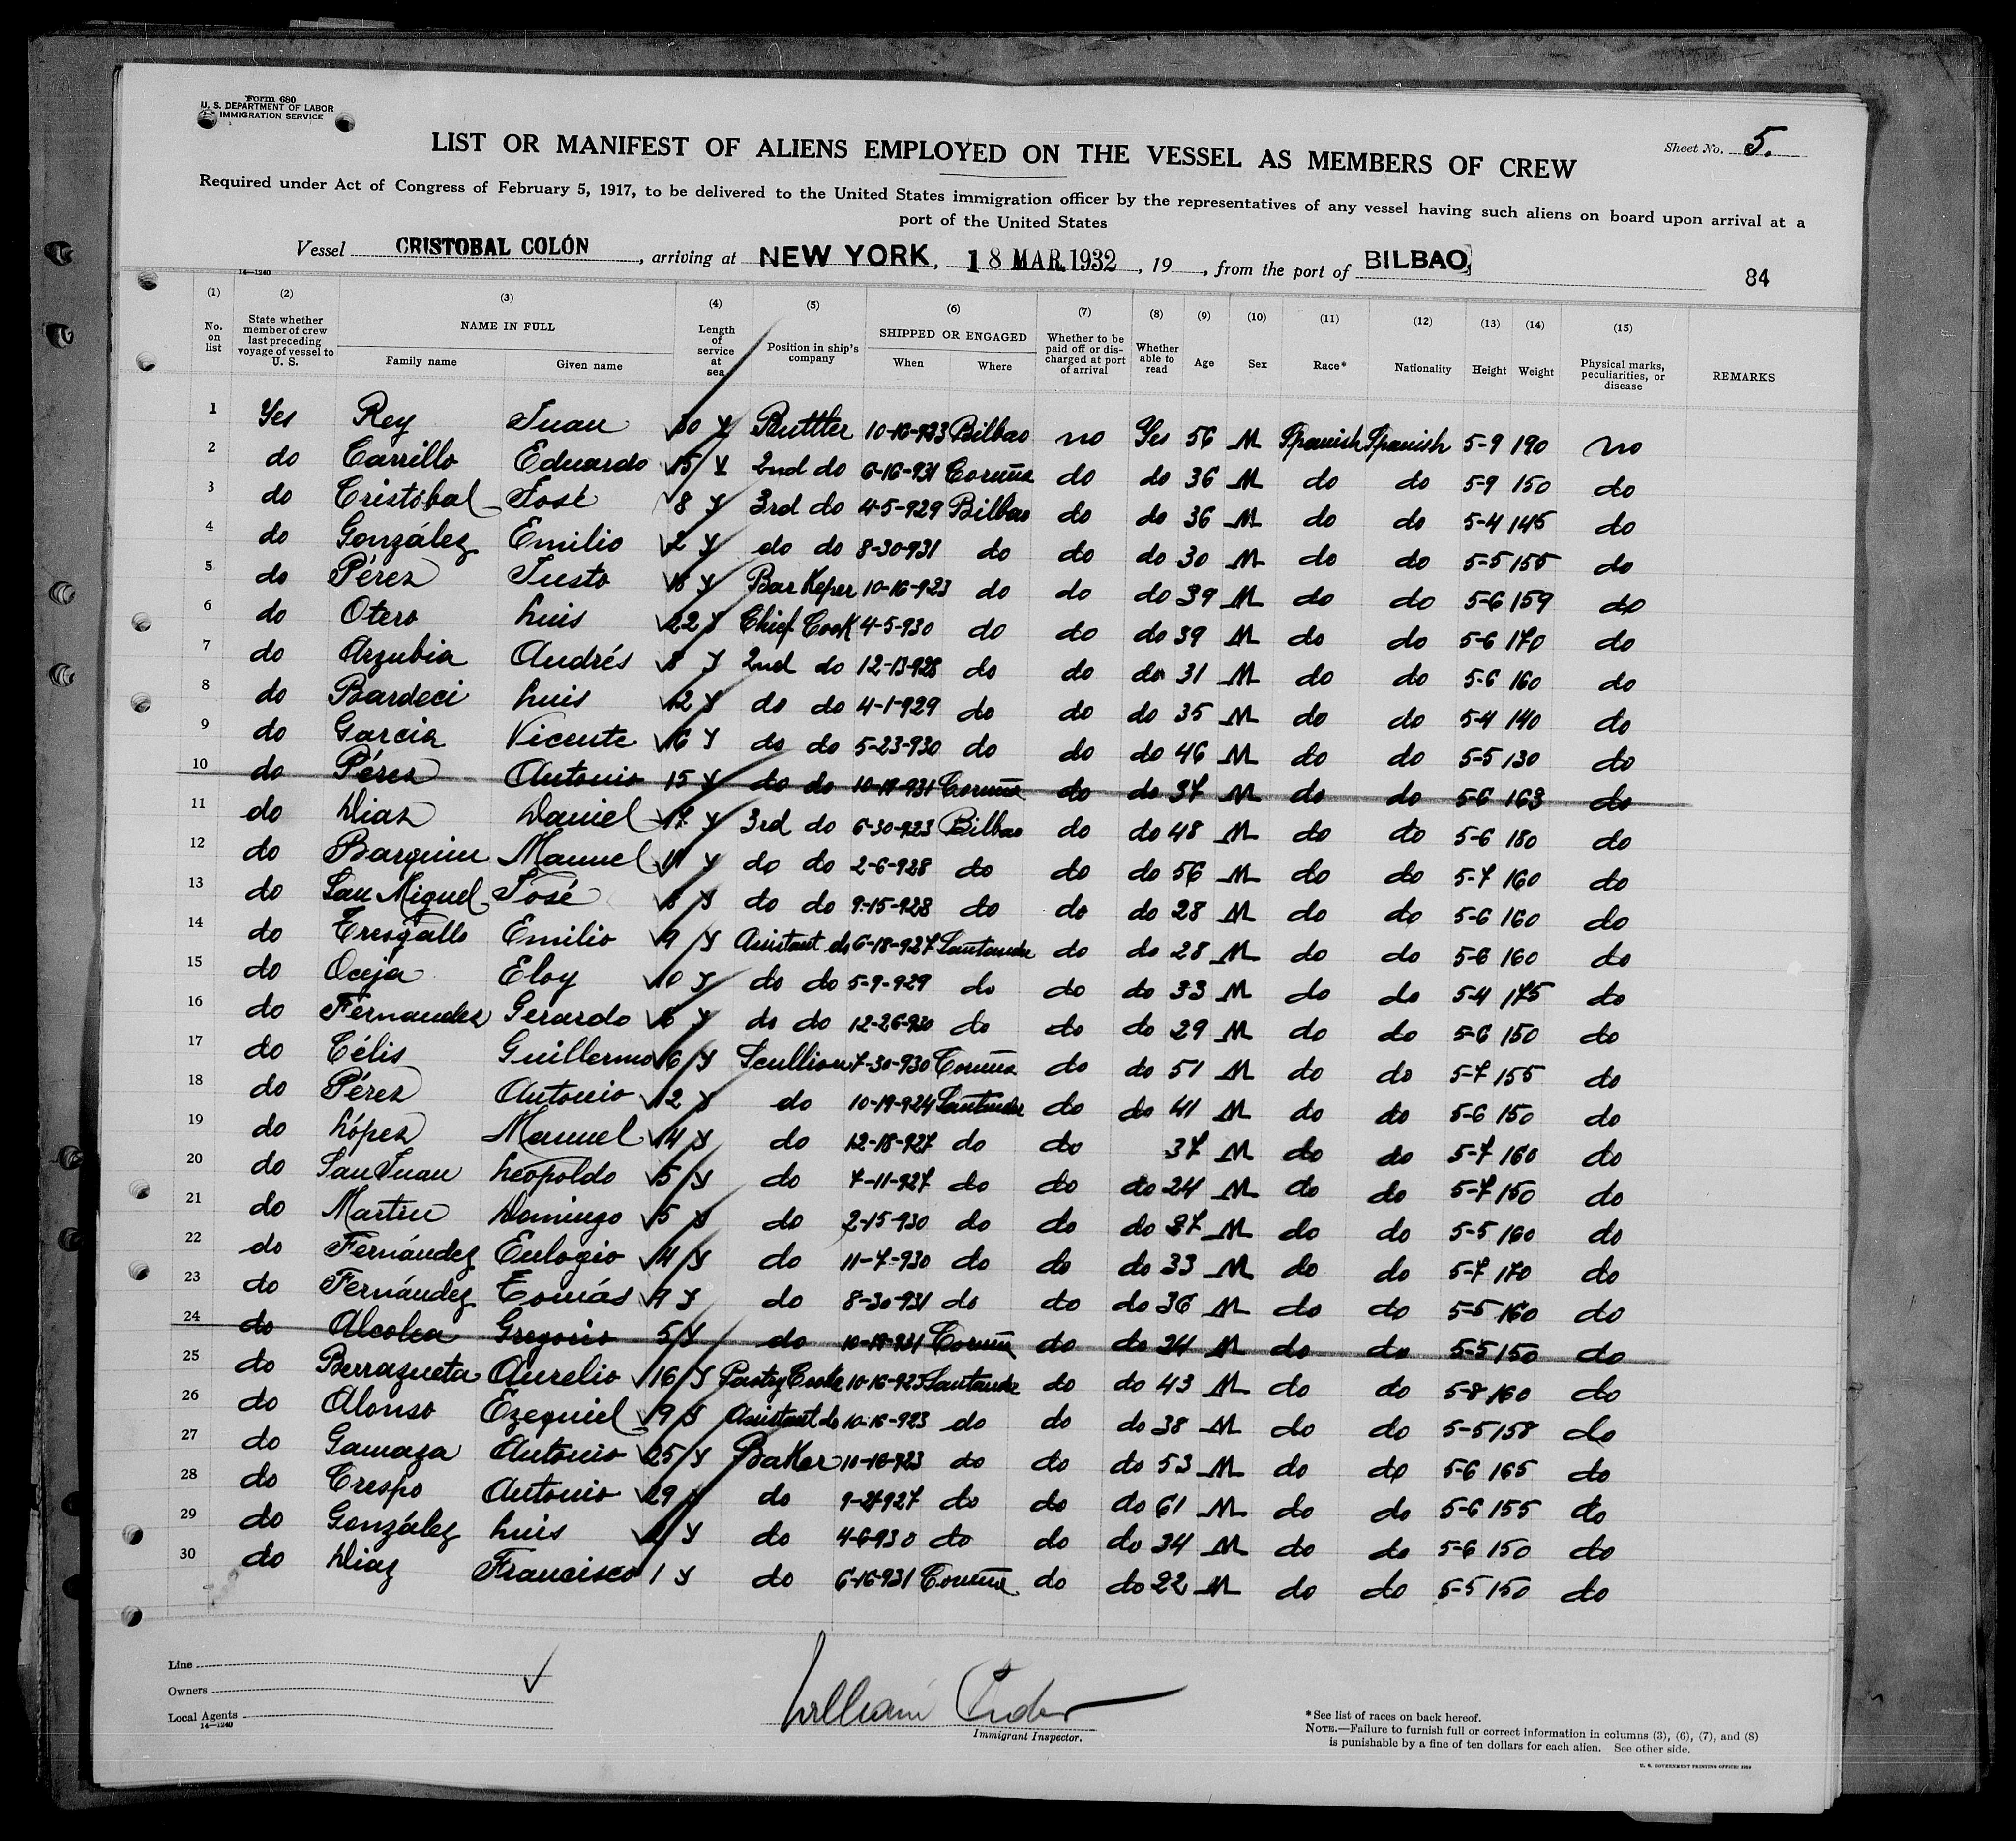 Form 680
U. S. DEPARTMENT OF LABOR
IMMIGRATION SERVICE
Sheet No. 5.
LIST OR MANIFEST OF ALIENS EMPLOYED ON THE VESSEL AS MEMBERS OF CREW
Required under Act of Congress of February 5, 1917, to be delivered to the United States immigration officer by the representatives of any vessel having such aliens on board upon arrival at a
port of the United States
Vessel CRISTOBAL COLÓN, arriving at NEW YORK, 18 MAR. 1932, 19 , from the port of BILBAO
14—1240
84
(1) (2) (3) (4) (5) (6) (7) (8) (9) (10) (11) (12) (13) (14) (15)
No. on list State whether member of crew last preceding voyage of vessel to U. S. NAME IN FULL Family name Given name Length of service at sea Position in ship's company SHIPPED OR ENGAGED When Where Whether to be paid off or discharged at port of arrival Whether able to read Age Sex Race* Nationality Height Weight Physical marks, peculiarities, or disease REMARKS
1 Yes Rey Juan 30 Y Buttler 10-16-923 Bilbao no Yes 56 M Spanish Spanish 5-9 190 no
2 do Carrillo Eduardo 15 Y 2nd do 6-16-931 Coruña do do 36 M do do 5-9 150 do
3 do Cristóbal José 8 Y 3rd do 4-5-929 Bilbao do do 36 M do do 5-4 145 do
4 do González Emilio 2 Y do do 8-30-931 do do do 30 M do do 5-5 155 do
5 do Pérez Justo Y Bar Keper 10-16-923 do do do 39 M do do 5-6 159 do
6 do Otero Luis 22 Y Chief Cook 4-5-930 do do do 39 M do do 5-6 170 do
7 do Arzubia Andrés 8 Y 2nd do 12-13-928 do do do 31 M do do 5-6 160 do
8 do Bardeci Luis 12 Y do do 4-1-929 do do do 35 M do do 5-4 140 do
9 do Garcia Vicente 16 Y do do 5-23-930 do do do 46 M do do 5-5 130 do
10 do Pérez Antonio 15 Y do do 10-19-931 Coruña do do 37 M do do 5-6 163 do
11 do Diaz Daniel 17 Y 3rd do 6-30-923 Bilbao do do 48 M do do 5-6 180 do
12 do Barquin Manuel Y do do 2-6-928 do do do 56 M do do 5-7 160 do
13 do San Miguel José 8 Y do do 9-15-928 do do do 28 M do do 5-6 160 do
14 do Tresgallo Emilio 9 Y Asistant do 6-18-927 Santander do do 28 M do do 5-6 160 do
15 do Oceja Eloy 10 Y do do 5-9-929 do do do 33 M do do 5-4 175 do
16 do Fernandez Gerardo Y do do 12-26-930 do do do 29 M do do 5-6 150 do
17 do Célis Guillermo 6 Y Scullion 7-30-930 Coruña do do 51 M do do 5-7 155 do
18 do Pérez Antonio 12 Y do 10-19-924 Santander do do 41 M do do 5-6 150 do
19 do López Manuel 14 Y do 12-18-927 do do 37 M do do 5-7 160 do
20 do San Juan Leopoldo 5 Y do 7-11-927 do do do 24 M do do 5-7 150 do
21 do Martin Domingo 5 Y do 2-15-930 do do do 37 M do do 5-5 160 do
22 do Fernández Eulogio 4 Y do 11-7-930 do do do 33 M do do 5-7 170 do
23 do Fernández Tomás 9 Y do 8-30-931 do do do 36 M do do 5-5 160 do
24 do Alcolea Gregorio 5 Y do 10-19-931 Coruña do do 34 M do do 5-5 150 do
25 do Berrazueta Aurelio 16 Y Pastry Cooke 10-16-923 Santander do do 43 M do do 5-8 160 do
26 do Alonso Ezequiel 9 Y Asistant do 10-16-923 do do do 38 M do do 5-5 158 do
27 do Gamaza Antonio 25 Y Baker 10-16-923 do do do 53 M do do 5-6 165 do
28 do Crespo Antonio 29 Y do 9-27-927 do do do 61 M do do 5-6 155 do
29 do González Luis Y do 4-6-930 do do do 34 M do do 5-6 150 do
30 do Diaz Francisco 1 Y do 6-16-931 Coruña do do 22 M do do 5-5 150 do
Line
Owners
Local Agents
14—1240
William
Immigrant Inspector.
*See list of races on back hereof.
NOTE.—Failure to furnish full or correct information in columns (3), (6), (7), and (8)
is punishable by a fine of ten dollars for each alien. See other side.